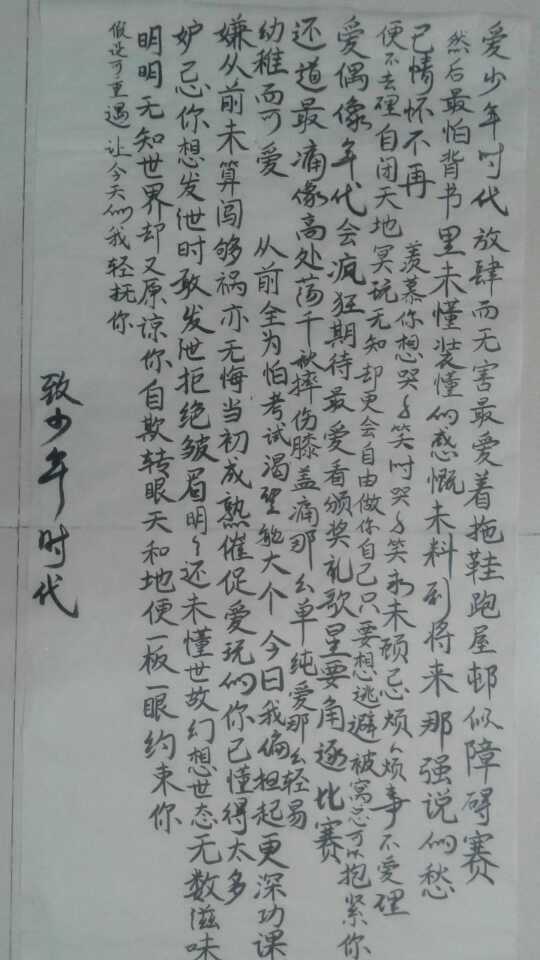 爱少年时代放肆而无害最爱着拖鞋跑屋邨似障碍赛
然后最怕背书里未懂装懂的感慨未料到将来那强说的愁
已情怀不再 羡慕你想哭哭笑时哭哭笑永未顾忌烦烦事不爱理
便不去理自闭天地冥玩无知却更会自由做你自己只要想逃避被窝忽可以抱紧你
爱偶像年代会疯狂期待最爱看颁奖礼歌星要角逐比赛
还道最痛像高处荡千秋摔伤膝盖痛那么单纯爱那么轻易
幼稚而可爱 从前全为怕考试渴望能大个今日我偏担起更深功课
嫌从前未算闯够祸亦无悔当初成熟催促爱玩的你已懂得太多
妒忌你想发泄时敢发泄拒绝皱眉明明还未懂世故幻想世态无数滋味
明明无知世界却又原谅你自欺转眼天和地便一板一眼约束你
假设可重遇让今天的我轻抚你
致少年时代